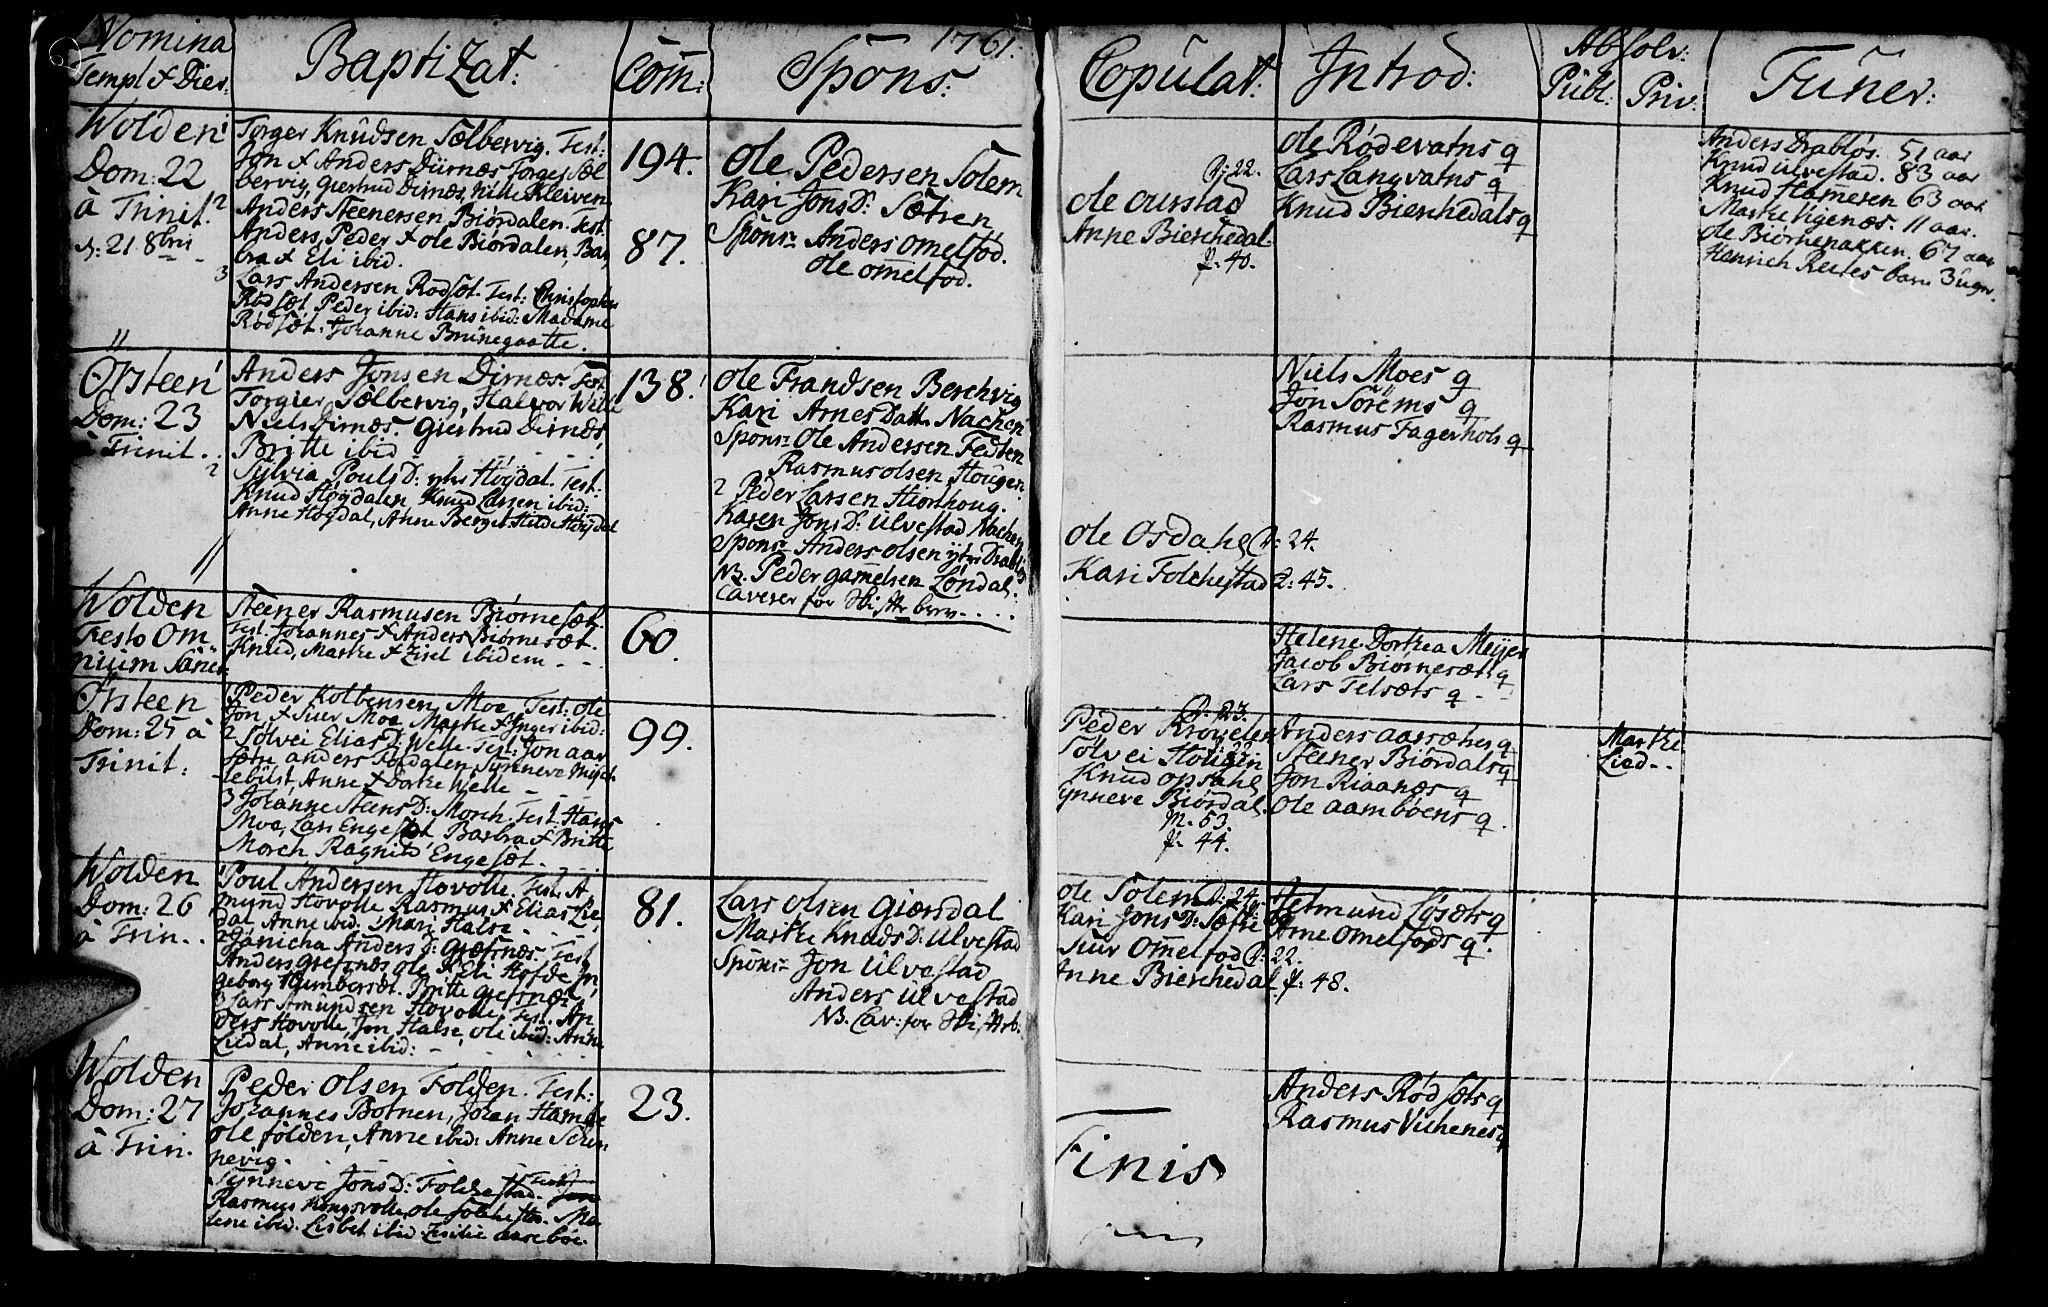 1761.
Nomina
Templ & Dier.
Baptizat:
Com:
Spons:
Copulat:
Introd:
Absolv:
Publ: Priv:
Funer:
Wolden
Dom: 22
à Trinit:
d: 21 8bris
Torger Knudsen Sælbervig. Test:
Jon & Anders Dürnæs Torger Sæl
bervig, Giertrud Dirnæs, Nille Kleiven
2 Anders Steenersen Biørdalen. Test
Anders, Peder & Ole Biørdalen, Bar
bra & Eli ibid.
3 Lars Andersen Rødsæt. Test: Christopher
Rødsæt Peder ibid: Hans ibid: Madame
Rødsæt: Johanne Brunegaatte.
194.
87.
Ole Pedersen Solem
Kari Jons D: Sætren
Spons: Anders Omelfod.
Ole Omelfod.
d: 22.
Ole Aurstad
Anne Bierchedal
p: 40.
Ole Rødevatns q
Lars Langvatns q
Knud Bierchedals q
Anders Drabløs. 51 aar
Knud Ulvestad. 83 aar
Knud Hamersen 63 aar
Marthe Vigenæs. 11 aar.
Ole Biørnenakken. 67 aar
Henrich Reetes barn 3 uger.
Ørsteen
Dom: 23
à Trinit..
Anders Jonsen Dirnæs. Test.
Torgier Sælbervig, Halvor Welle
Niels Dirnæs. Giertrud Dirnæs,
Britte ibid
2 Sylvia Pouls D: Høydal. Test:
Knud Høydalen Knud Larsen ibid:
Anne Høydal, Anne Berget Hilde Høydal
138.
Ole Frandsen Berchvig
Kari Arnes Datt. Nachen
Spons: Ole Andersen Festen
Rasmus Olsen Hougen
2 Peder Larsen Hiorthoug.
Karen Jons D: Ulvestad Nachen
Spons: Anders Olsen ytre Drabløs
NB. Peder Gamelsen Løndal.
Caverer for Skifttebrev....
Ole Osdahl d: 24.
Kari Folchestad p: 45.
Niels Moes q
Jon Sörems q
Rasmus Fagerhols q
Wolden
Festo Om
nium Sanct.
Steener Rasmusen Biørnesæt.
Test. Johannes & Anders Biørnesæt.
Knud, Marthe & Zisel ibidem
60.
Helene Dorthea Meyer
Jacob Biørnesæts q
Lars Telsæts q
Ørsteen
Dom: 25 à
Trinit:
Peder Kolbensen Moe, Test: Ole
Jon & Siur Moe Marthe & Inger ibid:
2 Solvei Elias D: Welle. Test: Jon aar
Sætre Anders Foldalen, Synneve Myck
lebust, Anne & Dorthe Welle
3 Johanne Steens D: Morch. Test. Hans
Moe, Lars Engesæt. Barbra & Britte
Morch Ragnild Engesæt.
99.
d: 23.
Peder Krøvelen
Solvei Hougen
Knud Opsahl
Synneve Biørdal
M. 53
p. 44.
Anders aarsæthers q
Steener Biørdals q
Jon Riaanæs q
Ole aambøens q.
Marthe
Lied..
Wolden
Dom: 26
à Trin..
Poul Andersen Hovolle. Test. A
mund Hovolle Rasmus & Elias Lie
dal Anne ibid: Mari Halse
2 Janicha Anders D: Græfsnæs. Test
Anders Grefsnæs Ole & Eli Hofde In
geborg Humbersæt. Britte Grefsnæs
3 Lars Amundsen Hovolle, Test. An
ders Hovolle, Jon Halse, Ole ibid: Anne
Liedal, Anne ibid:
81.
Lars Olsen Giørsdal
Marthe Knuds D: Ulvestad
Spons: Jon Ulvestad
Anders Ulvestad
NB. Cav: for Skifttb.
Ole Solem d: 24
Kari Jons D: Sætre
Siur Omelfod d: 22.
Anne Bierchedal p: 48.
Helmund Løsæts q
Arne Omelfods q.
Wolden
Dom: 27
à Trin.
Peder Olsen Folden. Test:
Johannes Botnen, Johan Hamde
Ole Folden, Anne ibid: Anne Schin
nevig.
Synneve Jons D: Folchestad. Test:
Rasmus Kongsvolle, Ole Folchestad. Ma
lene ibid. Lisbet ibid. Zisilie aaseböe.
23.
Anders Rødsæts q
Rasmus Vichenes q
Finis